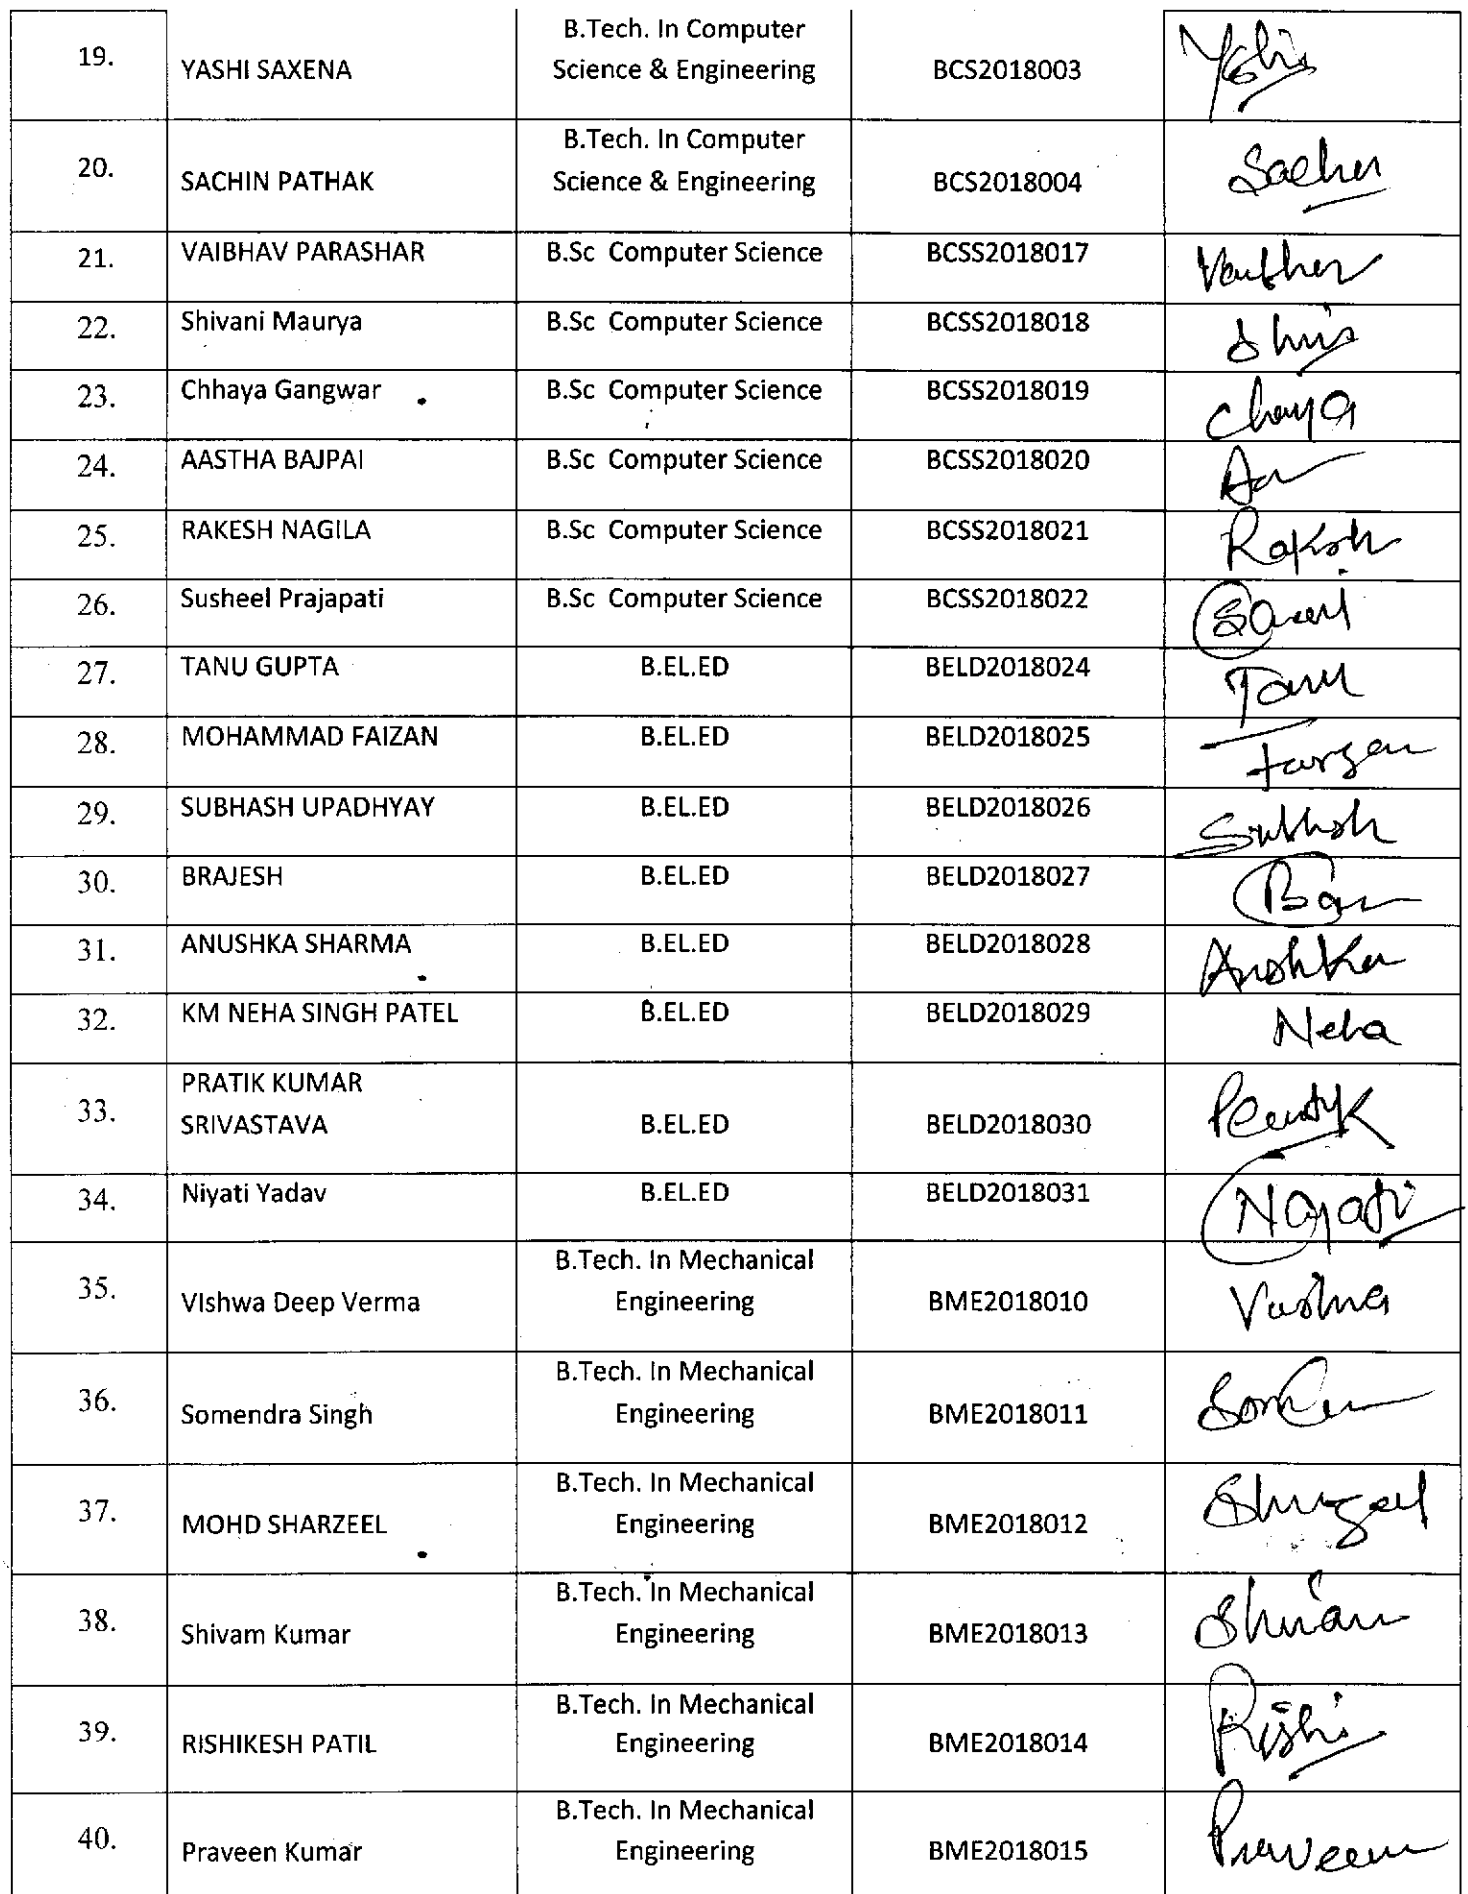 19. YASHI SAXENA B.Tech. In Computer Science & Engineering BCS2018003 Yashi
20. SACHIN PATHAK B.Tech. In Computer Science & Engineering BCS2018004 Sachin
21. VAIBHAV PARASHAR B.Sc Computer Science BCSS2018017
22. Shivani Maurya B.Sc Computer Science BCSS2018018
23. Chhaya Gangwar B.Sc Computer Science BCSS2018019 Chaya
24. AASTHA BAJPAI B.Sc Computer Science BCSS2018020
25. RAKESH NAGILA B.Sc Computer Science BCSS2018021 Rakesh
26. Susheel Prajapati B.Sc Computer Science BCSS2018022
27. TANU GUPTA B.EL.ED BELD2018024 Tanu
28. MOHAMMAD FAIZAN B.EL.ED BELD2018025
29. SUBHASH UPADHYAY B.EL.ED BELD2018026 Subhash
30. BRAJESH B.EL.ED BELD2018027
31. ANUSHKA SHARMA B.EL.ED BELD2018028 Anshka
32. KM NEHA SINGH PATEL B.EL.ED BELD2018029 Neha
33. PRATIK KUMAR SRIVASTAVA B.EL.ED BELD2018030
34. Niyati Yadav B.EL.ED BELD2018031
35. VIshwa Deep Verma B.Tech. In Mechanical Engineering BME2018010
36. Somendra Singh B.Tech. In Mechanical Engineering BME2018011
37. MOHD SHARZEEL B.Tech. In Mechanical Engineering BME2018012
38. Shivam Kumar B.Tech. In Mechanical Engineering BME2018013
39. RISHIKESH PATIL B.Tech. In Mechanical Engineering BME2018014 Rishi
40. Praveen Kumar B.Tech. In Mechanical Engineering BME2018015 Praveen